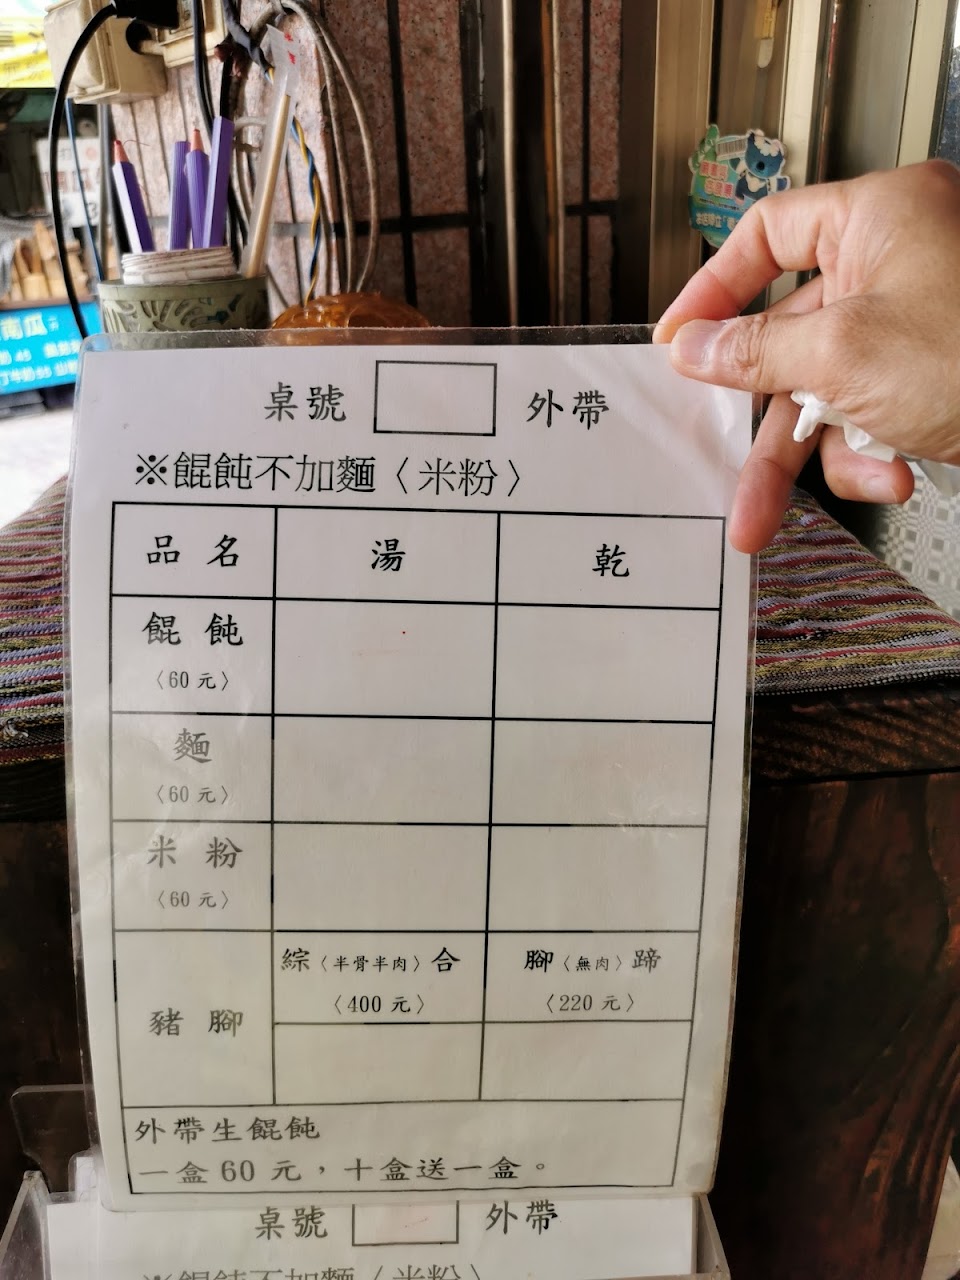 桌號 外帶
※餛飩不加麵〈米粉〉
品名 湯 乾
餛飩
〈60元〉
麵
〈60元〉
米粉
〈60元〉
豬腳
綜〈半骨半肉〉合
〈400元〉
腳〈無肉〉蹄
〈220元〉
外帶生餛飩
一盒60元，十盒送一盒。
桌號 外帶
※餛飩不加麵〈米粉〉
南瓜